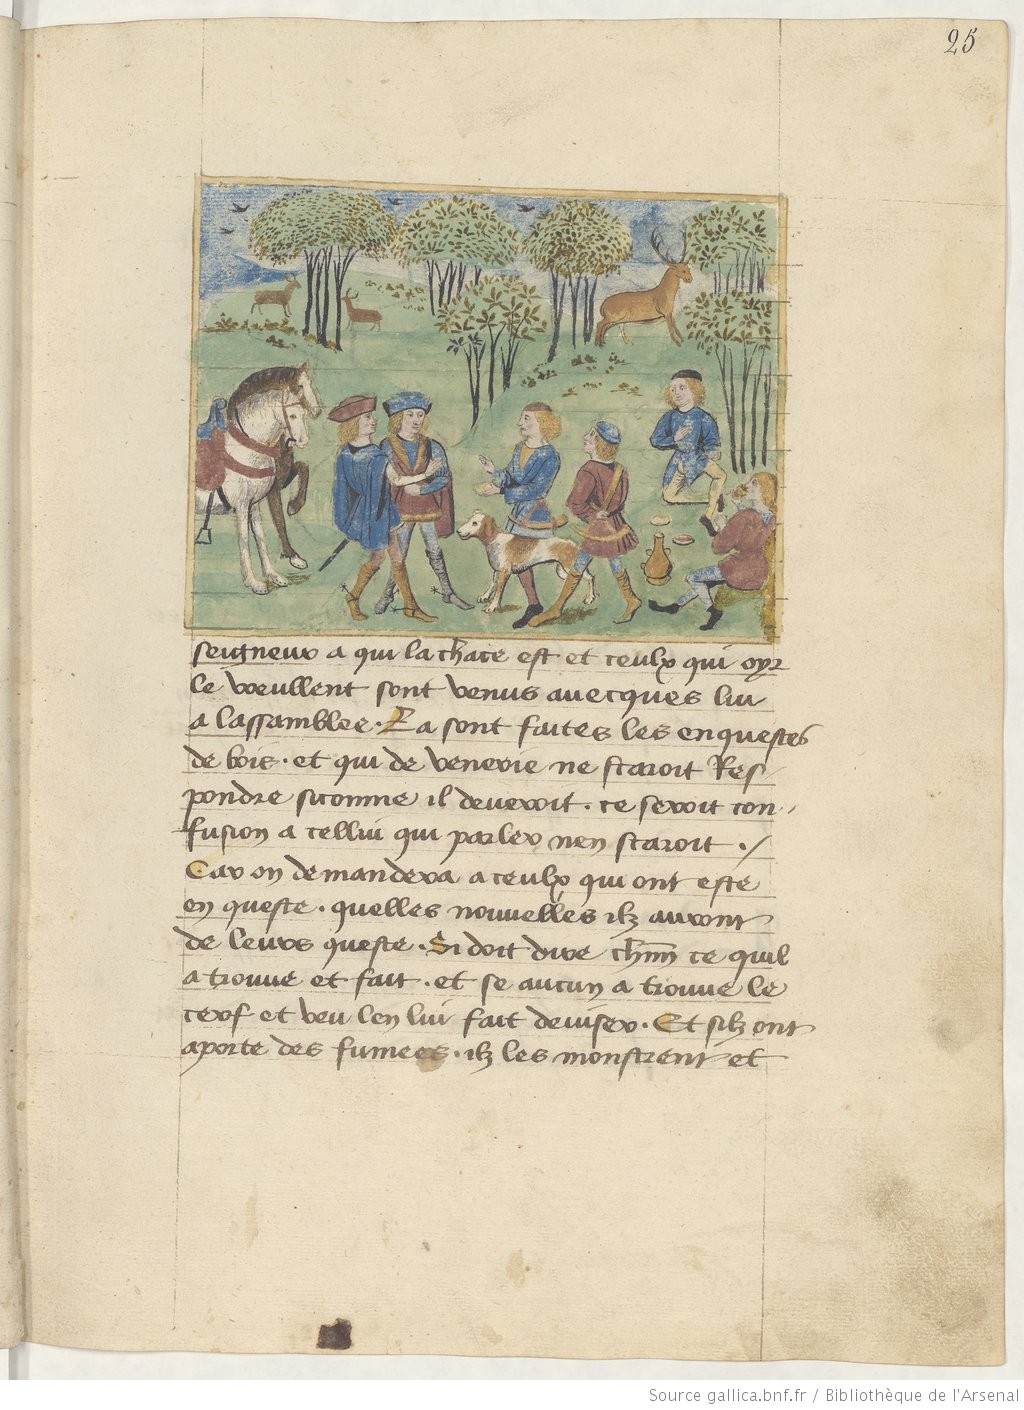 25
seigneur a qui la chace est et ceulx qui oyr
le veullent sont venus auecques lui
a lassamblee . La sont faites les enquestes
de bois . et qui de venerie ne scaroit Res
pondre sicomme il deueroit . ce seroit con
fusion a cellui qui parler nen scaroit . /
Car on demandera a ceulx qui ont este
en queste . quelles nouuelles ilz auront
de leurs queste . Si doit dire chun ce quil
a trouue et fait . et se aucun a trouue le
cerf et veu len lui fait deuiser . Et silz ont
aporte des fumees . ilz les monstrent et
Source gallica.bnf.fr / Bibliothèque de l'Arsenal